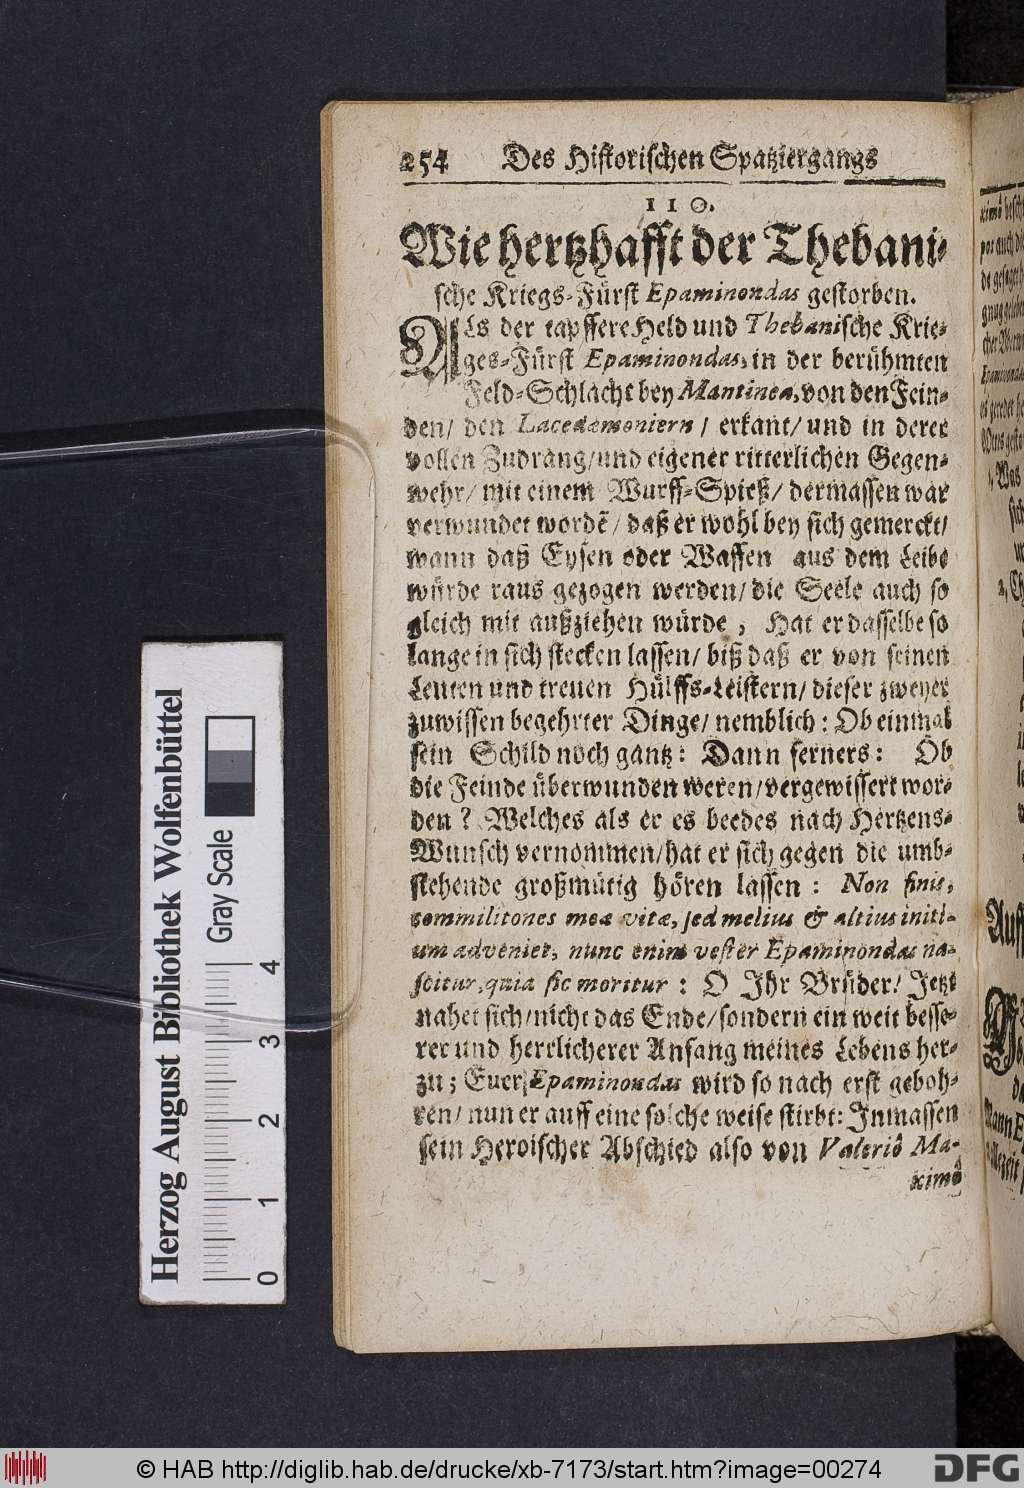 254 Des Historischen Spatziergangs
110.
Wie hertzhafft der Thebani-
sche Kriegs-Fürst Epaminondas gestorben.
Als der tapffere Held und Thebanische Krie-
ges-Fürst Epaminondas, in der berühmten
Feld-Schlacht bey Mantinea, von den Fein-
den/ den Lacedæmoniern / erkant/ und in derer
vollen Zudrang/ und eigener ritterlichen Gegen-
wehr/ mit einem Wurff-Spieß/ dermassen war
verwundet wordē/ daß er wohl bey sich gemerckt/
wann daß Eysen oder Waffen aus dem Leibe
würde raus gezogen werden/ die Seele auch so
gleich mit außziehen würde, Hat er dasselbe so
lange in sich stecken lassen/ biß daß er von seinen
Leuten und treuen Hülffs-Leistern/ dieser zweyer
zuwissen begehrter Dinge/ nemblich: Ob einmal
sein Schild noch gantz: Dann ferners: Ob
die Feinde überwunden weren/ vergewissert wor-
den? Welches als er es beedes nach Hertzens-
Wunsch vernommen/ hat er sich gegen die umb-
stehende großmütig hören lassen: Non finis,
commilitones meæ vitæ, sed melius & altius initi-
um advenier, nunc enim vester Epaminondas na-
scitur, quia sic moritur: O Ihr Brüder/ Jetzt
nahet sich/ nicht das Ende/ sondern ein weit besse-
rer und herrlicherer Anfang meines Lebens her-
zu; Euer Epaminondas wird so nach erst geboh-
ren/ nun er auff eine solche weise stirbt: Inmassen
sein Heroischer Abschied also von Valeriô Ma-
ximô
Herzog August Bibliothek Wolfenbüttel
Gray Scale
0 1 2 3 4
© HAB http://diglib.hab.de/drucke/xb-7173/start.htm?image=00274
DFG